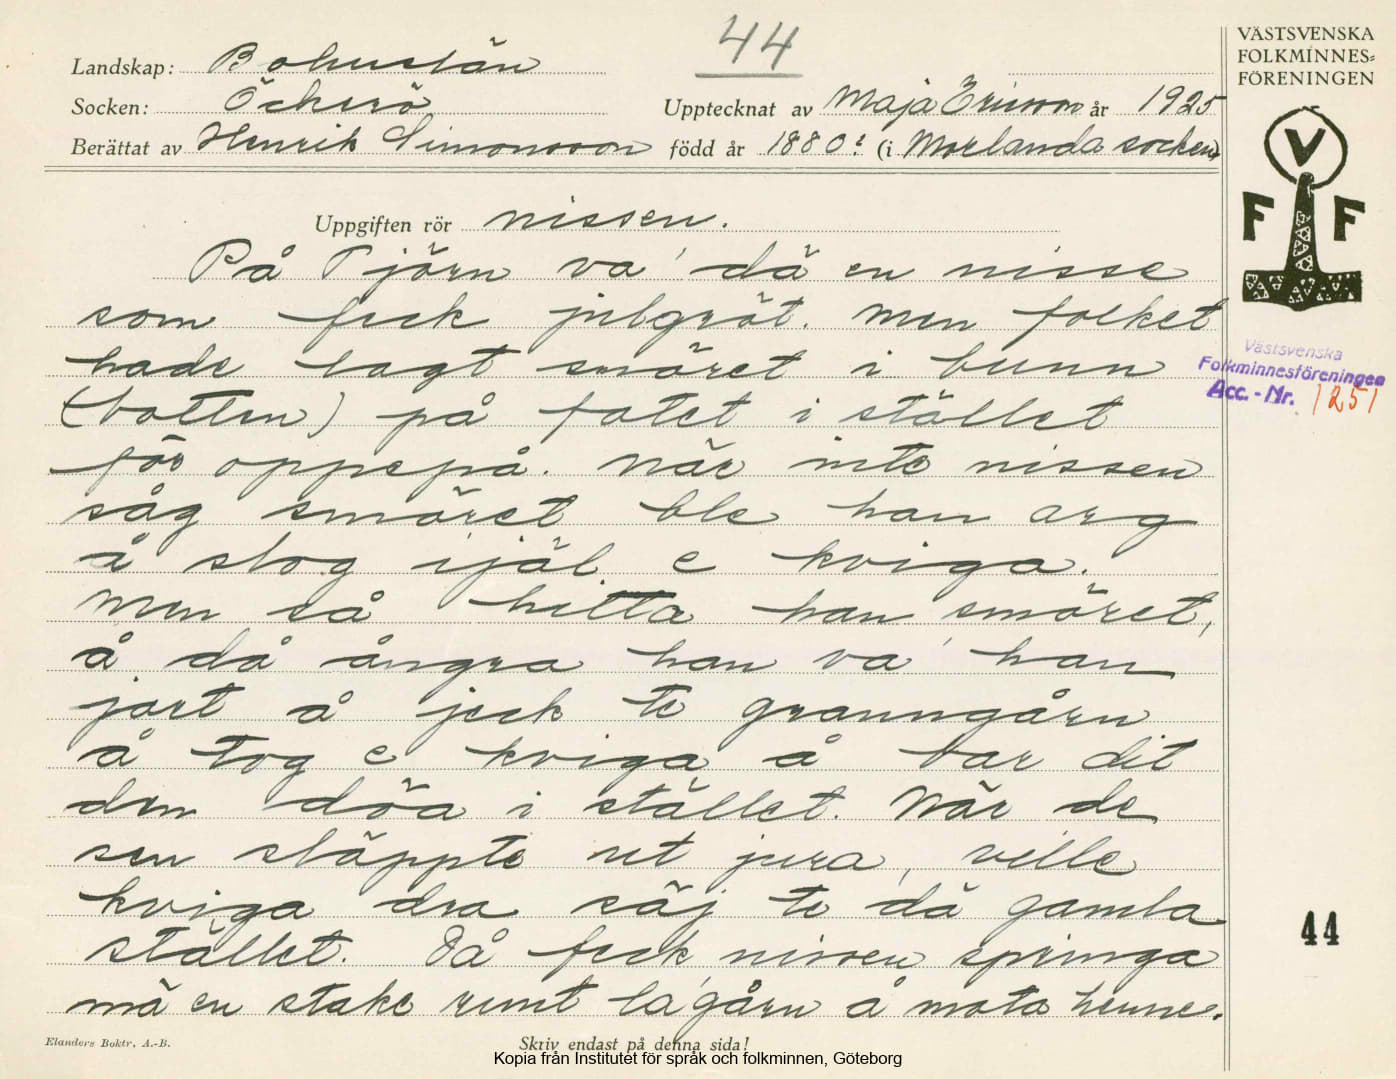 44
Landskap: Bohuslän
Socken: Öckerö
Upptecknat av Maja Ericson år 1925
Berättat av Henrik Simonsson född år 1880? (i Morlanda socken)
VÄSTSVENSKA
FOLKMINNES-
FÖRENINGEN
V
F F
Uppgiften rör nissen.
På Tjörn va' dä en nisse
som feck julgröt. Men folket
hade lagt smöret i bunn
(botten) på fatet i stället
för oppepå. När inte nissen
såg smöret ble han arg
å slog ijäl e kviga.
Men så hitta han smöret,
å då ångra han va' han
jort å jeck te granngårn
å tog e kviga å bar dit
den döa i stället. När de
sen släppte ut jura, ville
kviga dra säj te dä gamla
stället. Då feck nissen springa
mä en stake runt la'gårn å mota henne.
Västsvenska
Folkminnesföreningen
Acc.-Nr. 1251
44
Elanders Boktr. A.-B.
Skriv endast på denna sida!
Kopia från Institutet för språk och folkminnen, Göteborg